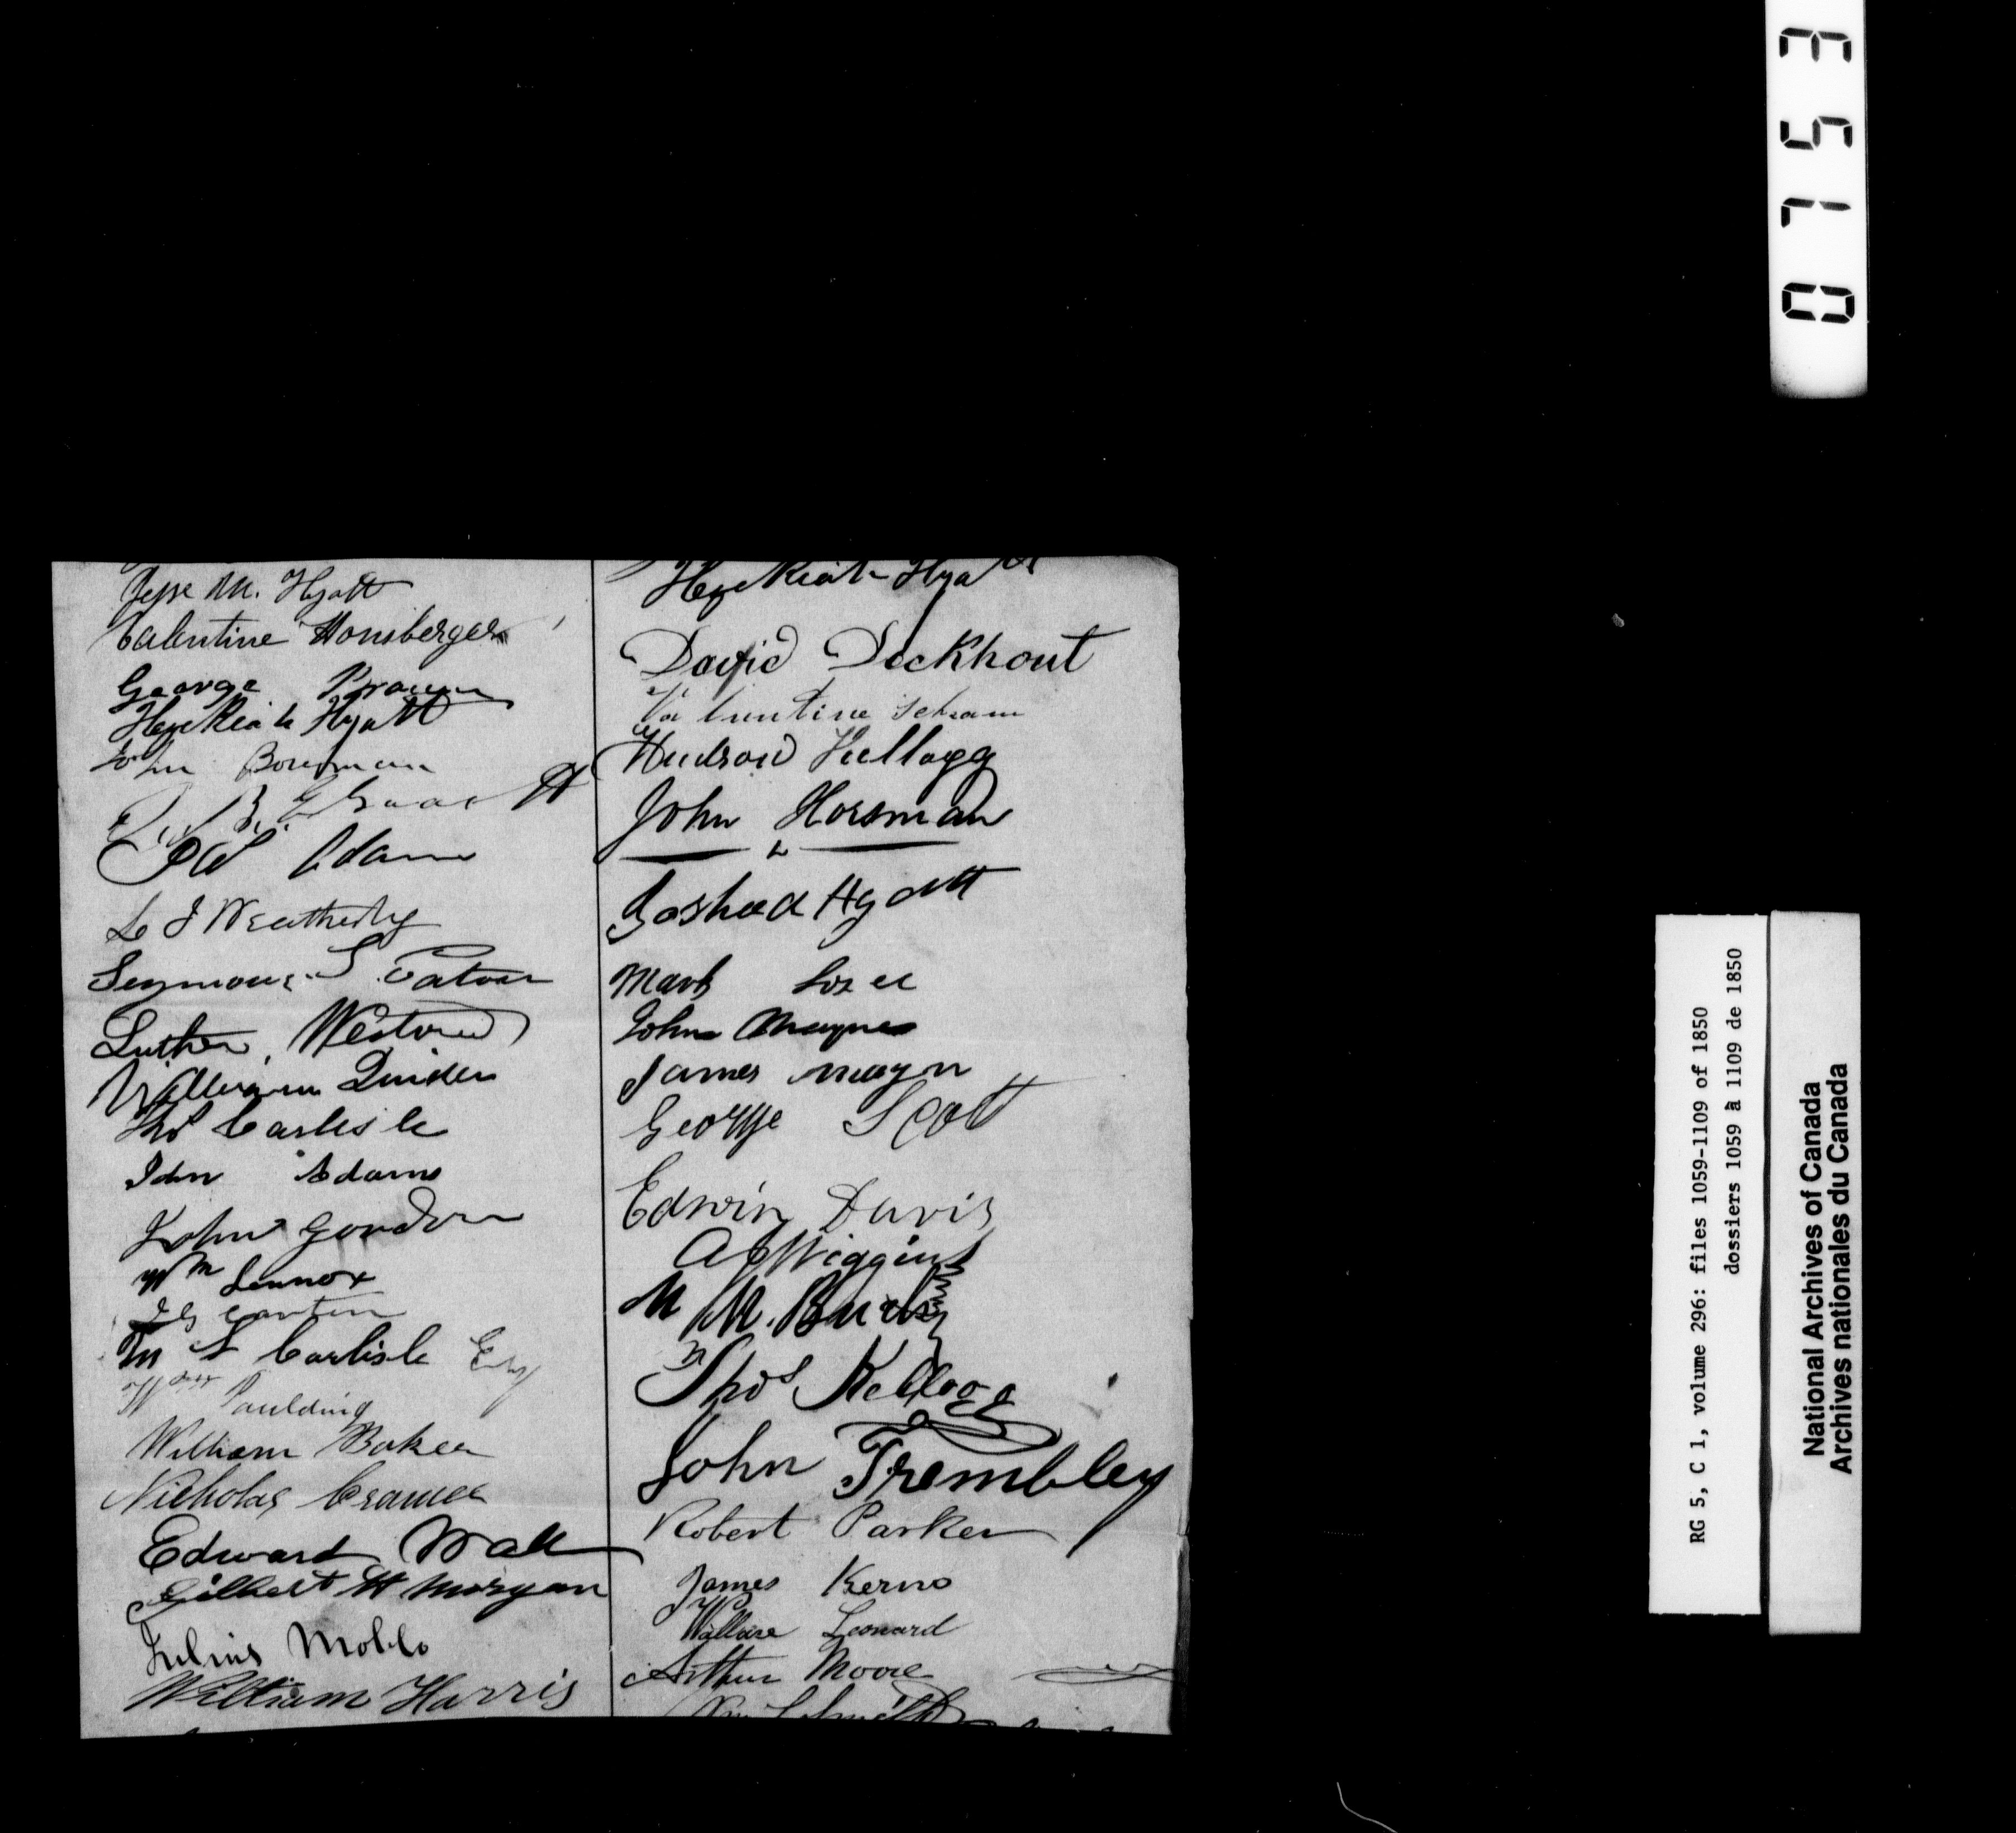 Jesse M. Hyatt
Valentine Honsberger
George Brown
Hezekiah Hyatt
John Bowman
Adams
L J Weatherby
Seymour S. Eaton
Luther Weston
William
Thos Carlisle
John Adams
John Gordon
Wm Lennox
Wm Paulding
Carlisle
William Baker
Nicholas Cramer
Edward Wall
Gilbert W Morgan
Julius Moblo
William Harris
Hezekiah Hyatt
David Dockhout
Valuntine Schram
Hudson Kellogg
John Horsman
Joshua Hyatt
Mark
John Mayne
James Mayn
George Scott
Edwin Davis
Wiggins
M
Thos Kellogg
John Trembley
Robert Parker
James Kerns
Wallace Leonard
Arthur Moore
0753
RG 5, C 1, volume 296: files 1059-1109 of 1850
dossiers 1059 à 1109 de 1850
National Archives of Canada
Archives nationales du Canada